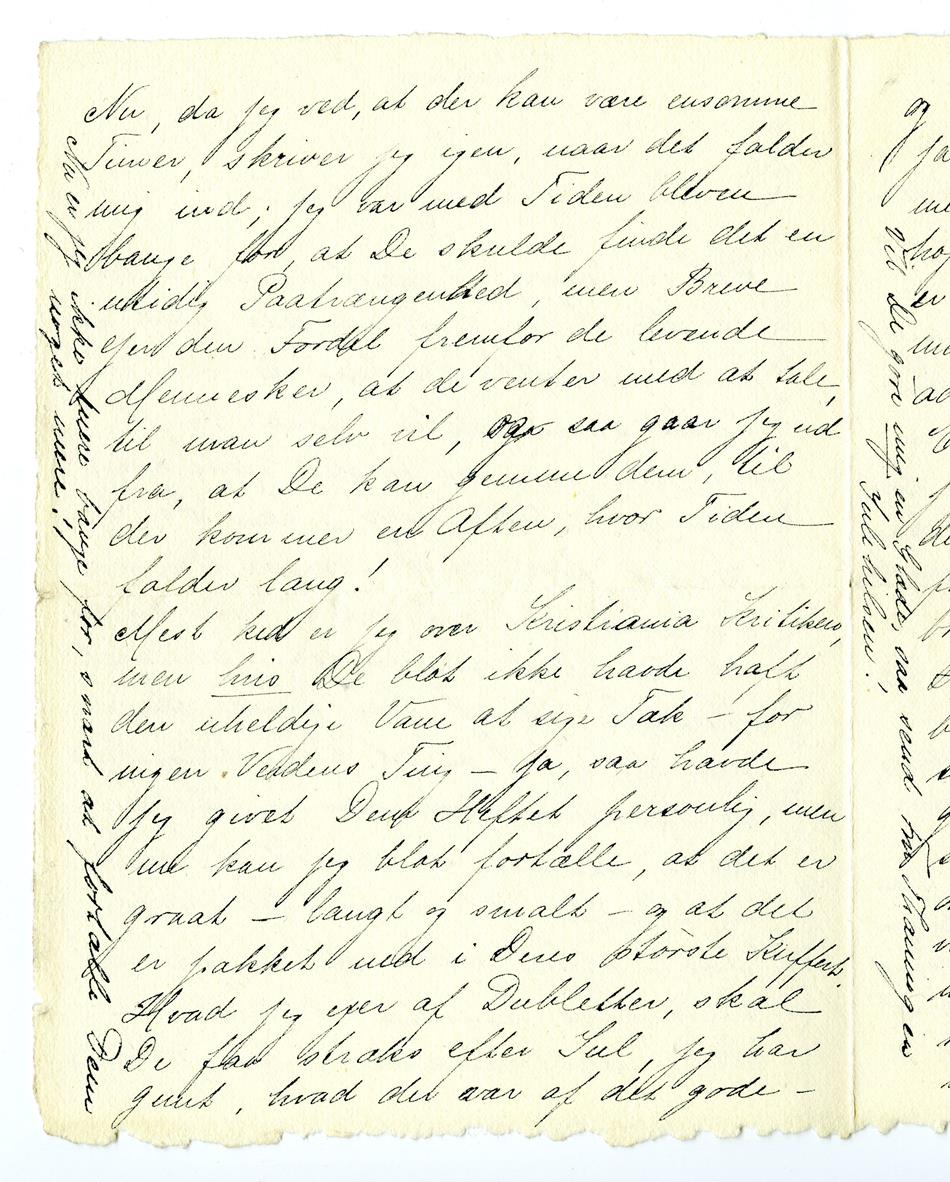 Nu, da jeg ved, at der kan være ensomme
Timer, skriver jeg igen, naar det falder
mig ind; jeg var med Tiden bleven
bange for, at De skulde finde det en
utidig Paatrængenhed, men Breve
ejer den Fordel fremfor de levende
Mennesker, at de venter med at tale,
til man selv vil, og saa gaar jeg ud
fra, at De kan gemme dem, til
der kommer en Aften, hvor Tiden
falder lang!
Mest ked er jeg over Kristiania Kritiken,
men hvis De blot ikke havde haft
den uheldige Vane at sige Tak – for
ingen Verdens Ting – ja, saa havde
jeg givet Dem Heftet personlig, men
nu kan jeg blot fortælle, at det er
graat – langt og smalt – og at det
er pakket ned i Deres største Kuffert.
Hvad jeg ejer af Dubletter, skal
De faa straks efter Jul, jeg har
gemt, hvad der var af det gode –
Nu er jeg ikke mere bange for, snart at fortælle Dem
noget mere!
Vil De gøre mig en Glæde, saa send Thanning en
Julehilsen!
og